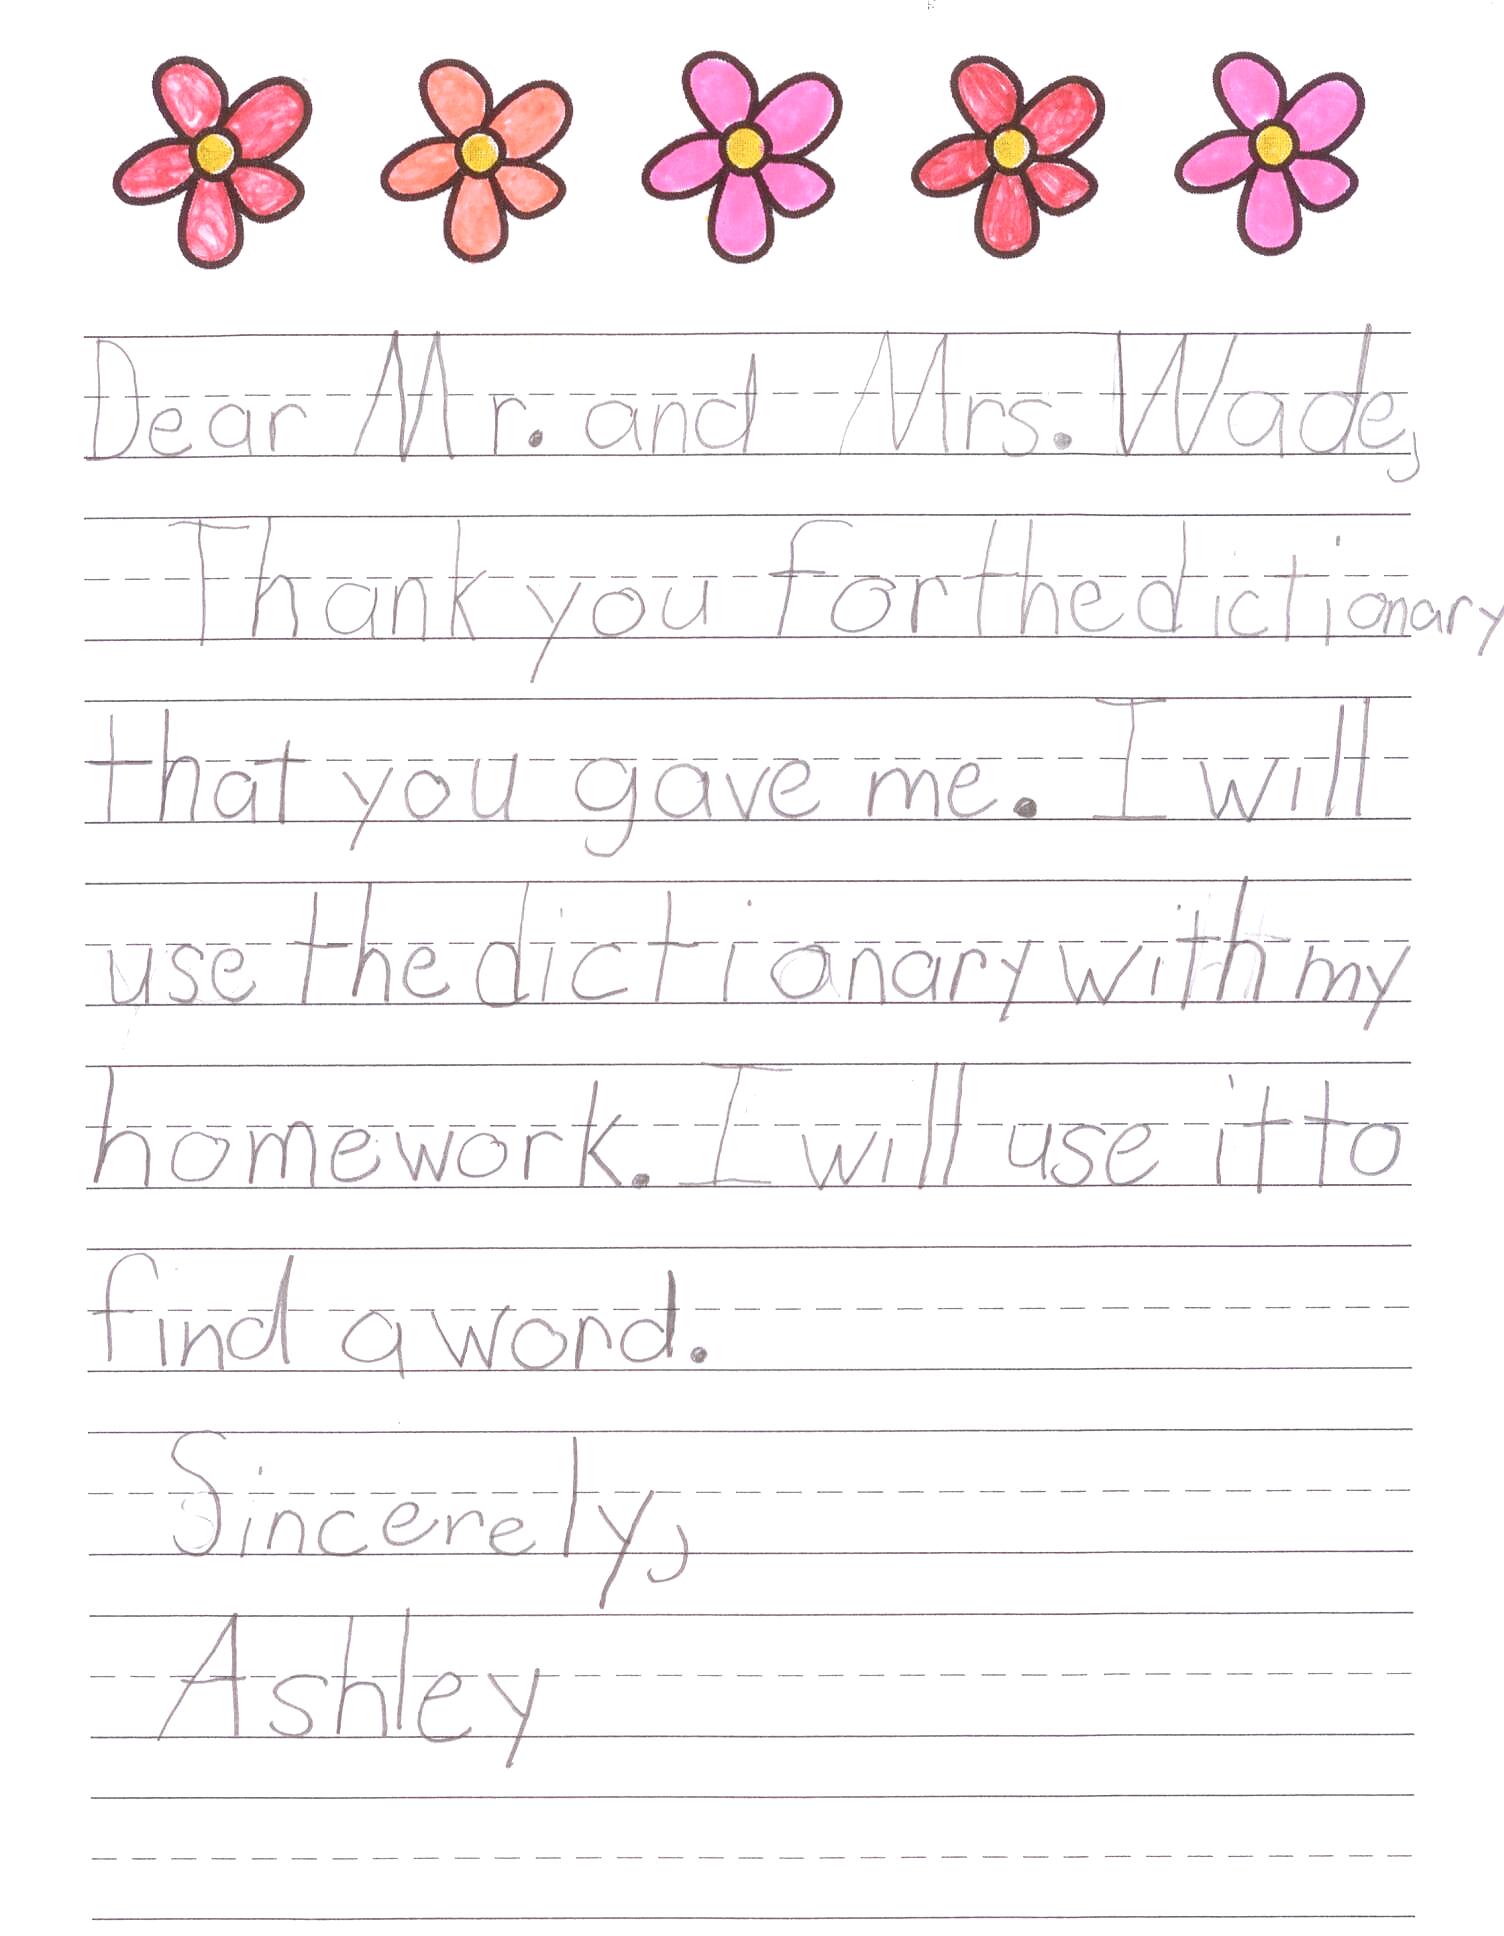 Dear Mr. and Mrs. Wade,
Thank you for the dictionary
that you gave me. I will
use the dictionary with my
homework. I will use it to
find a word.
Sincerely,
Ashley